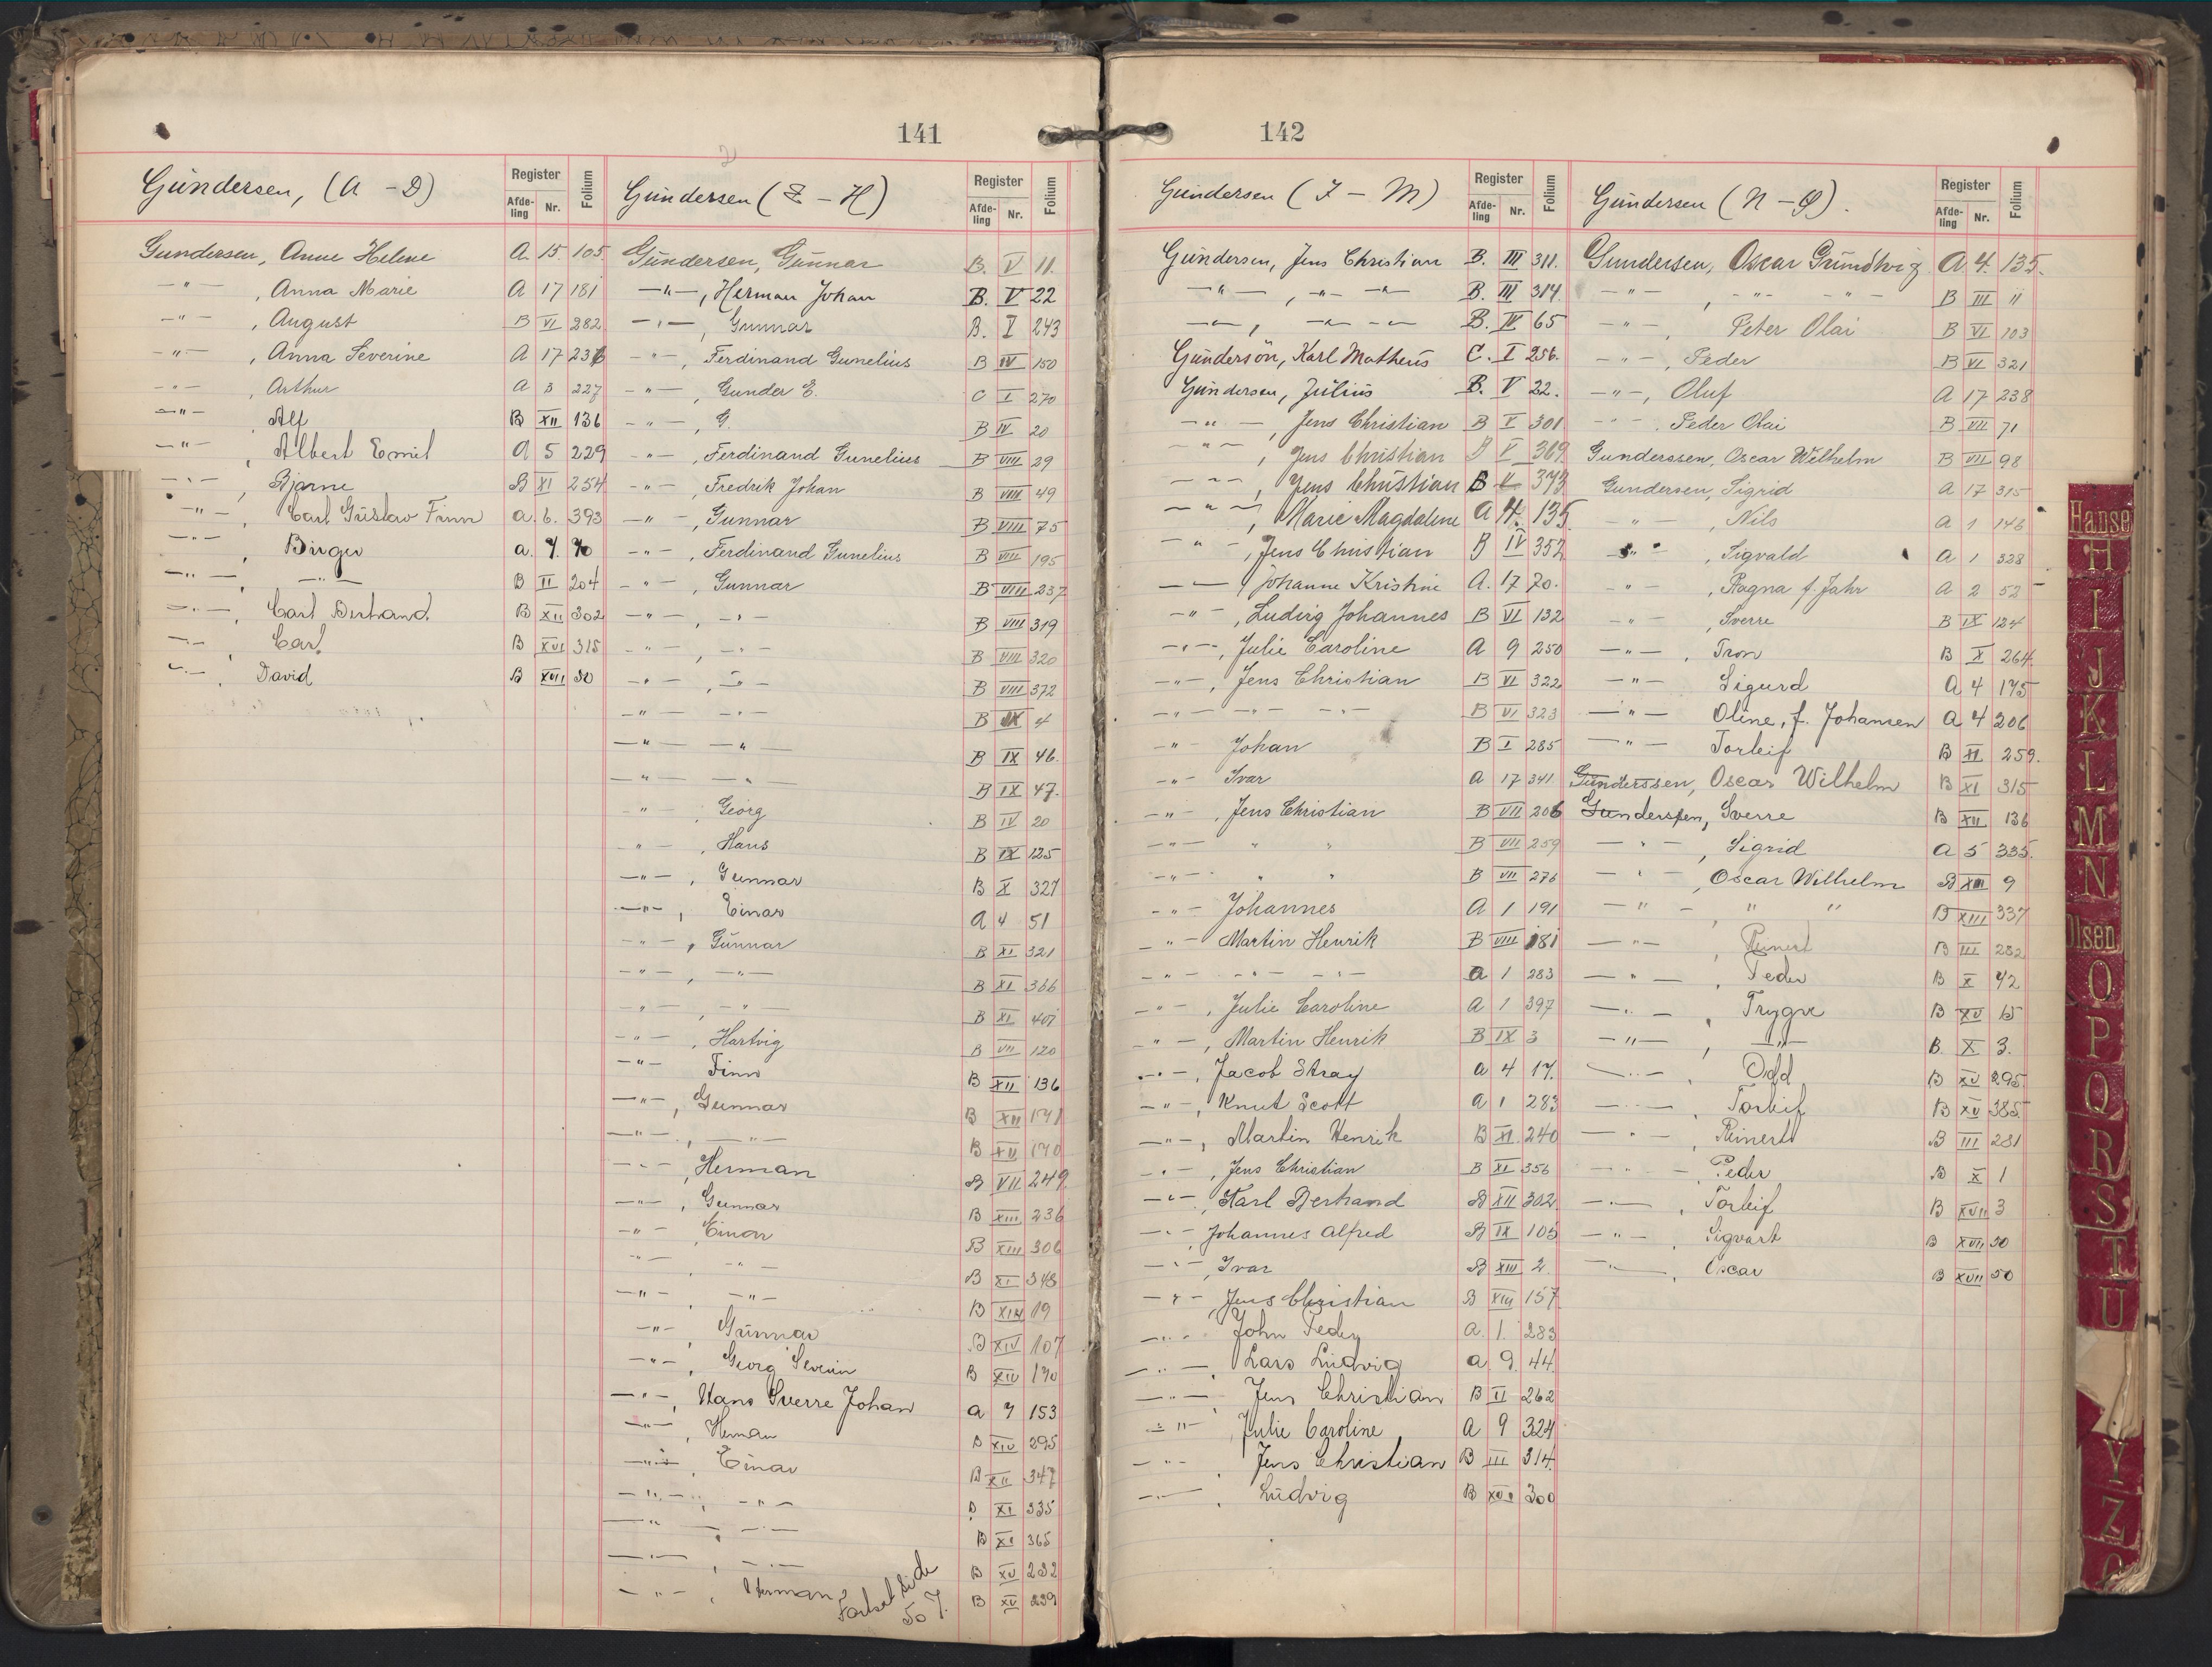 141
Gundersen, (A - D)
Register
Afdeling Nr. Folium
Gundersen, Anne Helene A. 15. 105.
-"- , Anna Marie A 17 181
-"- , August B VI 282
-"- , Anna Severine A 17 236
-"- , Arthur A 3 227
-"- , Alf B XII 136
-"- , Albert Emil A 5 229
-"- , Bjarne B XI 254
-"- , Carl Gustav Finn a. 6. 393
-"- , Birger a. 7. 70
-"- , -"- B II 204
-"- , Carl Bertrand B XII 302
-"- , Carl B XVI 315
-"- , David B XVII 30
Gundersen (E - H)
Register
Afdeling Nr. Folium
Gundersen, Gunnar B. V 11.
-"-, Herman Johan B. V 22
-"-, Gunnar B. I 243
-"-, Ferdinand Gunelius B IV 150
-"-, Gunder E. C I 270
-"-, G. B IV 20
-"-, Ferdinand Gunelius B VIII 29
-"-, Fredrik Johan B VIII 49
-"-, Gunnar B VIII 75
-"-, Ferdinand Gunelius B VIII 195
-"-, Gunnar B VIII 237
-"-, -"- B VIII 319
-"-, -"- B VIII 320
-"-, -"- B VIII 372
-"- -"- B IX 4
-"- -"- B IX 46.
-"- -"- B IX 47.
-"- , Georg B IV 20
-"- , Hans B IX 125
-"- , Gunnar B X 327
-"- , Einar A 4 51
-"- , Gunnar B XI 321
-"- , -"- B XI 366
-"- , -"- B XI 401
-"- , Hartvig B VII 120
-"- Finn B XII 136
-"- , Gunnar B XII 171
-"- , -"- B XII 170
-"- , Herman B VII 249
-"- , Gunnar B XIII 236
-"- , Einar B XIII 306
-"- , -"- B XI 348
-"- , -"- B XIV 19
-"- , Gunnar B XIV 107
-"- , Georg Severin B XIV 170
-"- , Hans Sverre Johan a 7 153
-"- , Herman B XIV 295
-"- , Einar B XII 347
-"- , -"- B XI 335
-"- , -"- B XI 365
-"- , -"- B XV 232
-"- , Herman B XV 239
Forts. side 507.
142
Gundersen (I - M)
Register
Afdeling Nr. Folium
Gundersen, Jens Christian B. III 311.
-"- , -"- -"- B. III 314
-"- , -"- -"- B. IV 65
Gundersön, Karl Matheus C. I 256.
Gundersen, Julius B. V 22.
-"- , Jens Christian B I 301
-"- , Jens Christian B V 369
-"- , Jens Christian B V 373
-"- , Marie Magdalene A 4. 135.
-"- , Jens Christian B IV 352
-"- , Johanne Kristine A. 17 70.
-"- , Ludvig Johannes B VI 132
-"-, Julie Caroline A 9 250
-"-, Jens Christian B VI 322
-"- -"- -"- B VI 323
-"- Johan B I 285
-"- Ivar A 17 341
-"- , Jens Christian B VII 206
-"- " " B VII 259
-"- " " B VII 276
-"- Johannes A 1 191
-"- Martin Henrik B VIII 181
-"- -"- -"- a 1 283
-"- , Julie Caroline A 1 397
-"- , Martin Henrik B IX 3
-"-, Jacob Stray a 4 17.
-"-, Knut Scott a 1 283
-"-, Martin Henrik B XI 240
-"- , Jens Christian B XI 356
-"-, Karl Bertrand B XII 302
-"- Johannes Alfred B IX 105
-"-, Ivar B XIII 2
-"- , Jens Christian B XIII 157
-"- John Peder a. 1. 283
-"- , Lars Ludvig a 9. 44.
-"- , Jens Christian B II 262
-"- , Julie Caroline A 9 324
-"- , Jens Christian B III 314.
-"- , Ludvig B XVI 300
Gundersen (N - Ø).
Register
Afdeling Nr. Folium
Gundersen, Oscar Grundtvig A 4. 135.
-"- , -"- -"- B III 11
-"- , Peter Olai B VI 103
-"- , Peder B VI 321
-"-, Oluf A 17 238
-"- , Peder Olai B VII 71
Gunderssen, Oscar Wilhelm B VII 98
Gundersen, Sigrid A 17 315
-"- , Nils A 1 146
-"- , Sigvald A 1 328
-"- , Ragna f. Jahr A 2 52
-"- , Sverre B IX 124
-"- , Tron B X 264.
-"- Sigurd A 4 175
-"- Oline, f. Johansen A 4 206
-"- Torleif B XI 259.
Gunderssen, Oscar Wilhelm B XI 315
Gundersen, Sverre B XII 136
-"- , Sigrid a 5 335.
-"- , Oscar Wilhelm B XIII 9
-"- , " " B XIII 337
-"- , Reinert B III 282
-"- , Peder B X 42
-"- , Trygve B XV 65
-"- , -"- B. X 3.
-"- , Odd B XV 295
-"- , Torleif B XV 385.
-"- , Reinert B III 281
-"- , Peder B X 1
-"- , Torleif B XVII 3
-"- , Sigvart B XVII 30
-"- , Oscar B XVII 50
Hanse
H
I
J
K
L
M
N
Olsen
O
P
Q
R
S
T
U
Y
Z